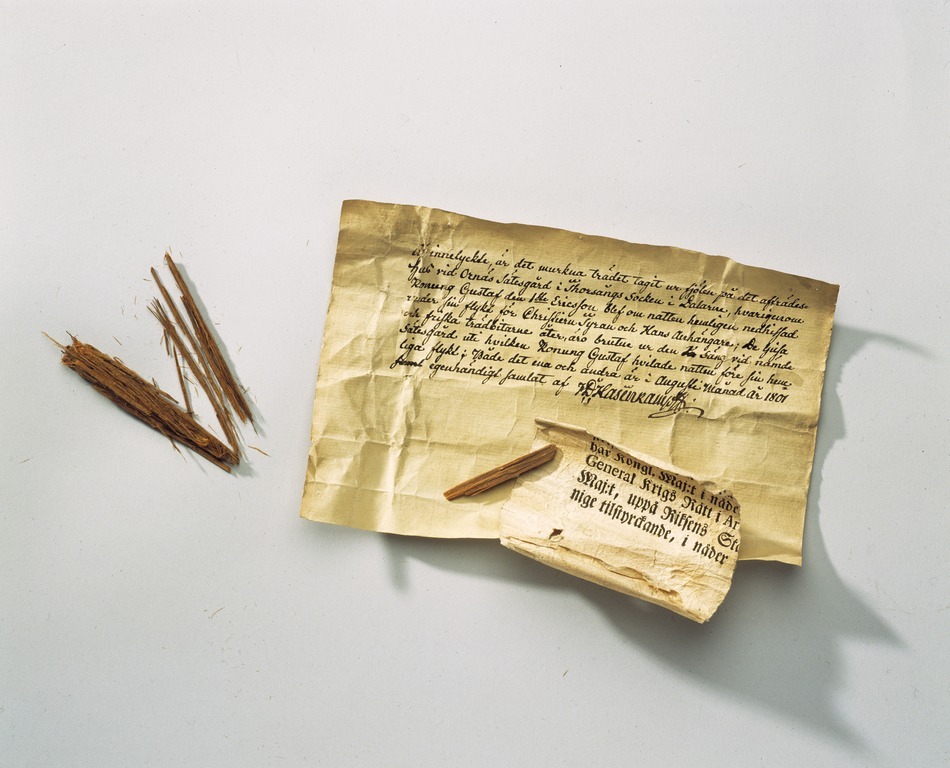 innelyckte, är det murkna trädet tagit ur fjölen på det affrädes-
hus vid Ornäs Sätesgård i Thorsångs Socken i Dalarne, hvarigenom
Konung Gustaf den 1ste Ericsson blef om natten hemligen nedhissad
under sin flykt för Christiern Tyran och Hans Anhängare; De ljusa
och friska trädbitarne åter, äro brutne ur den Säng vid nämde
Sätesgård uti hvilken Konung Gustaf hvilade natten före sin hem-
liga flykt; Både det ena och andra är i Augusti Månad år 1801
egenhändigt samlat af Hasenkampff
här Kongl. Maj:t i nåde
General Krigs Rätt i Ar
Maj:t, uppå Riksens Stä
nige tilstyrckande, i nåder